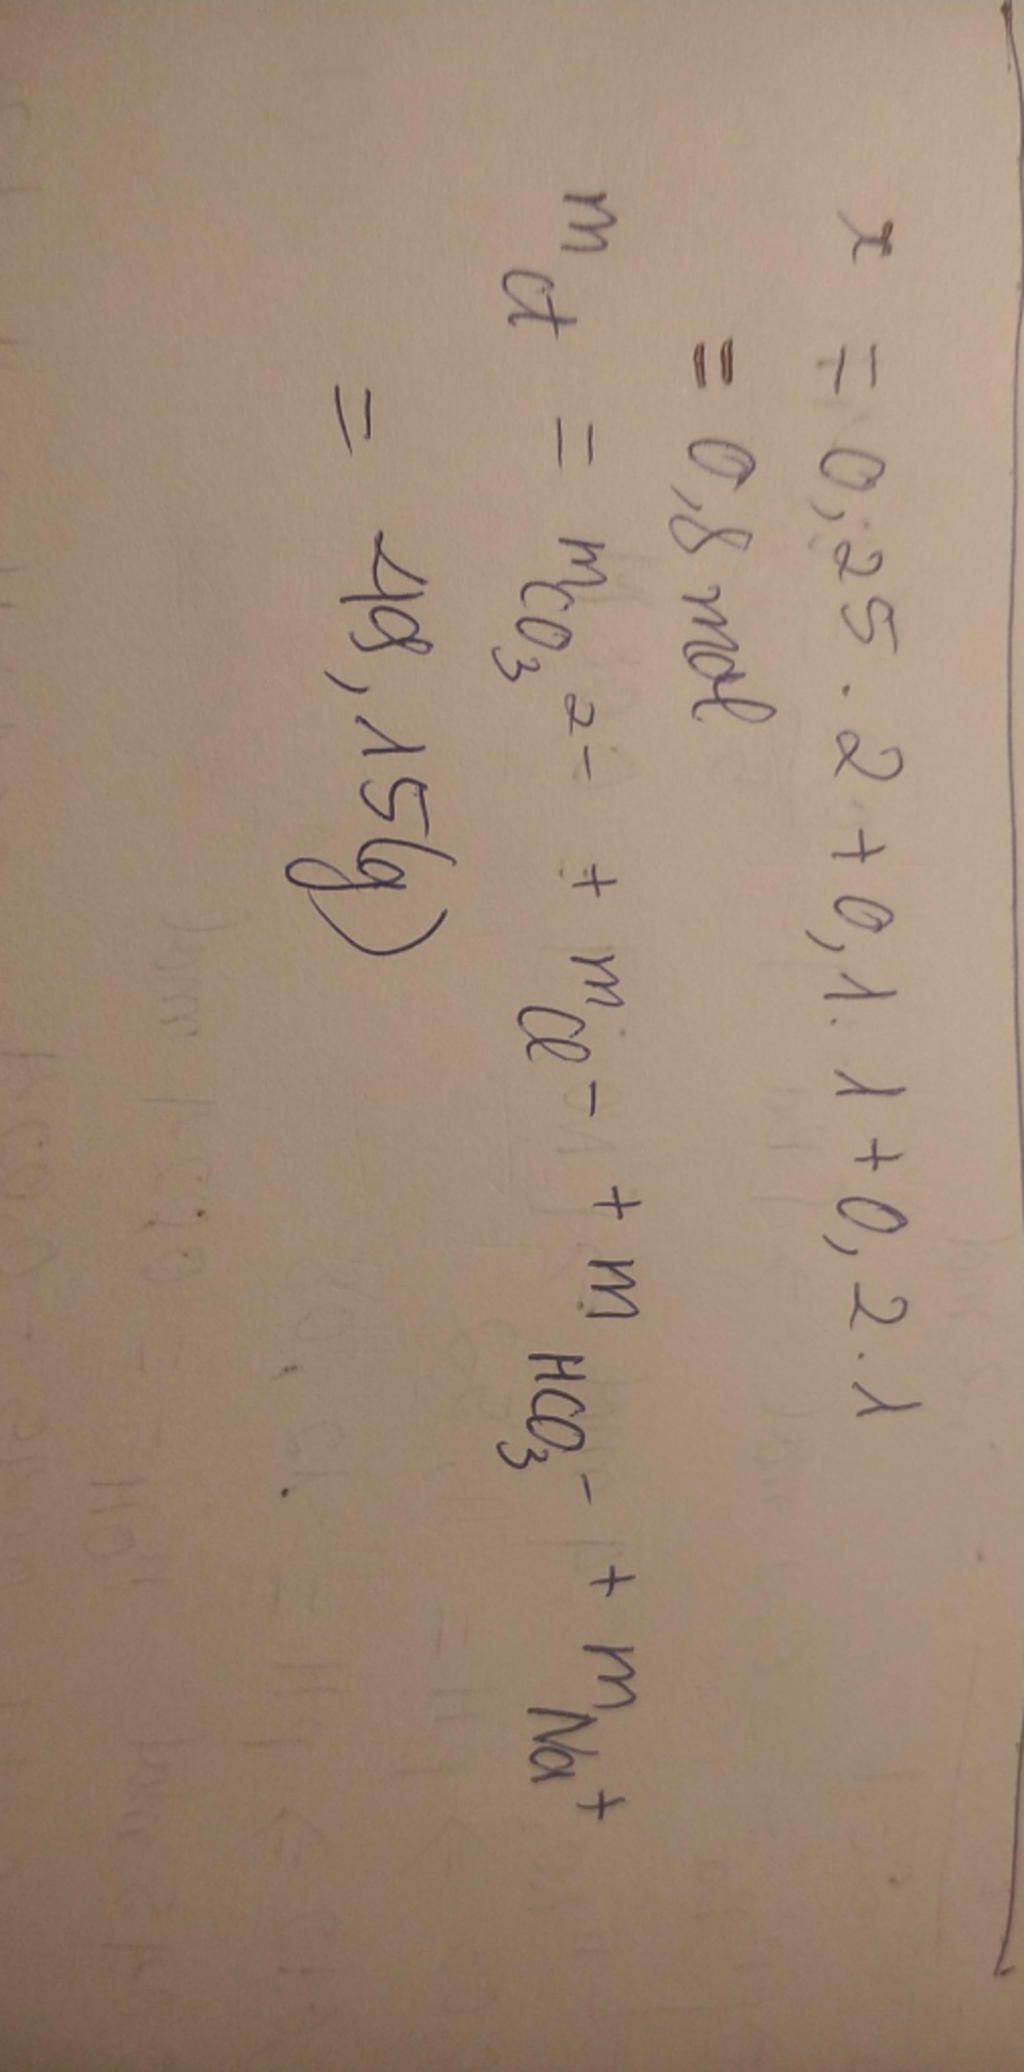 x = 0,25.2 + 0,1.1 + 0,2.1
= 0,8 mol
m ct = m CO₃²⁻ + m Cl⁻ + m HCO₃⁻ + m Na⁺
= 48,15(g)